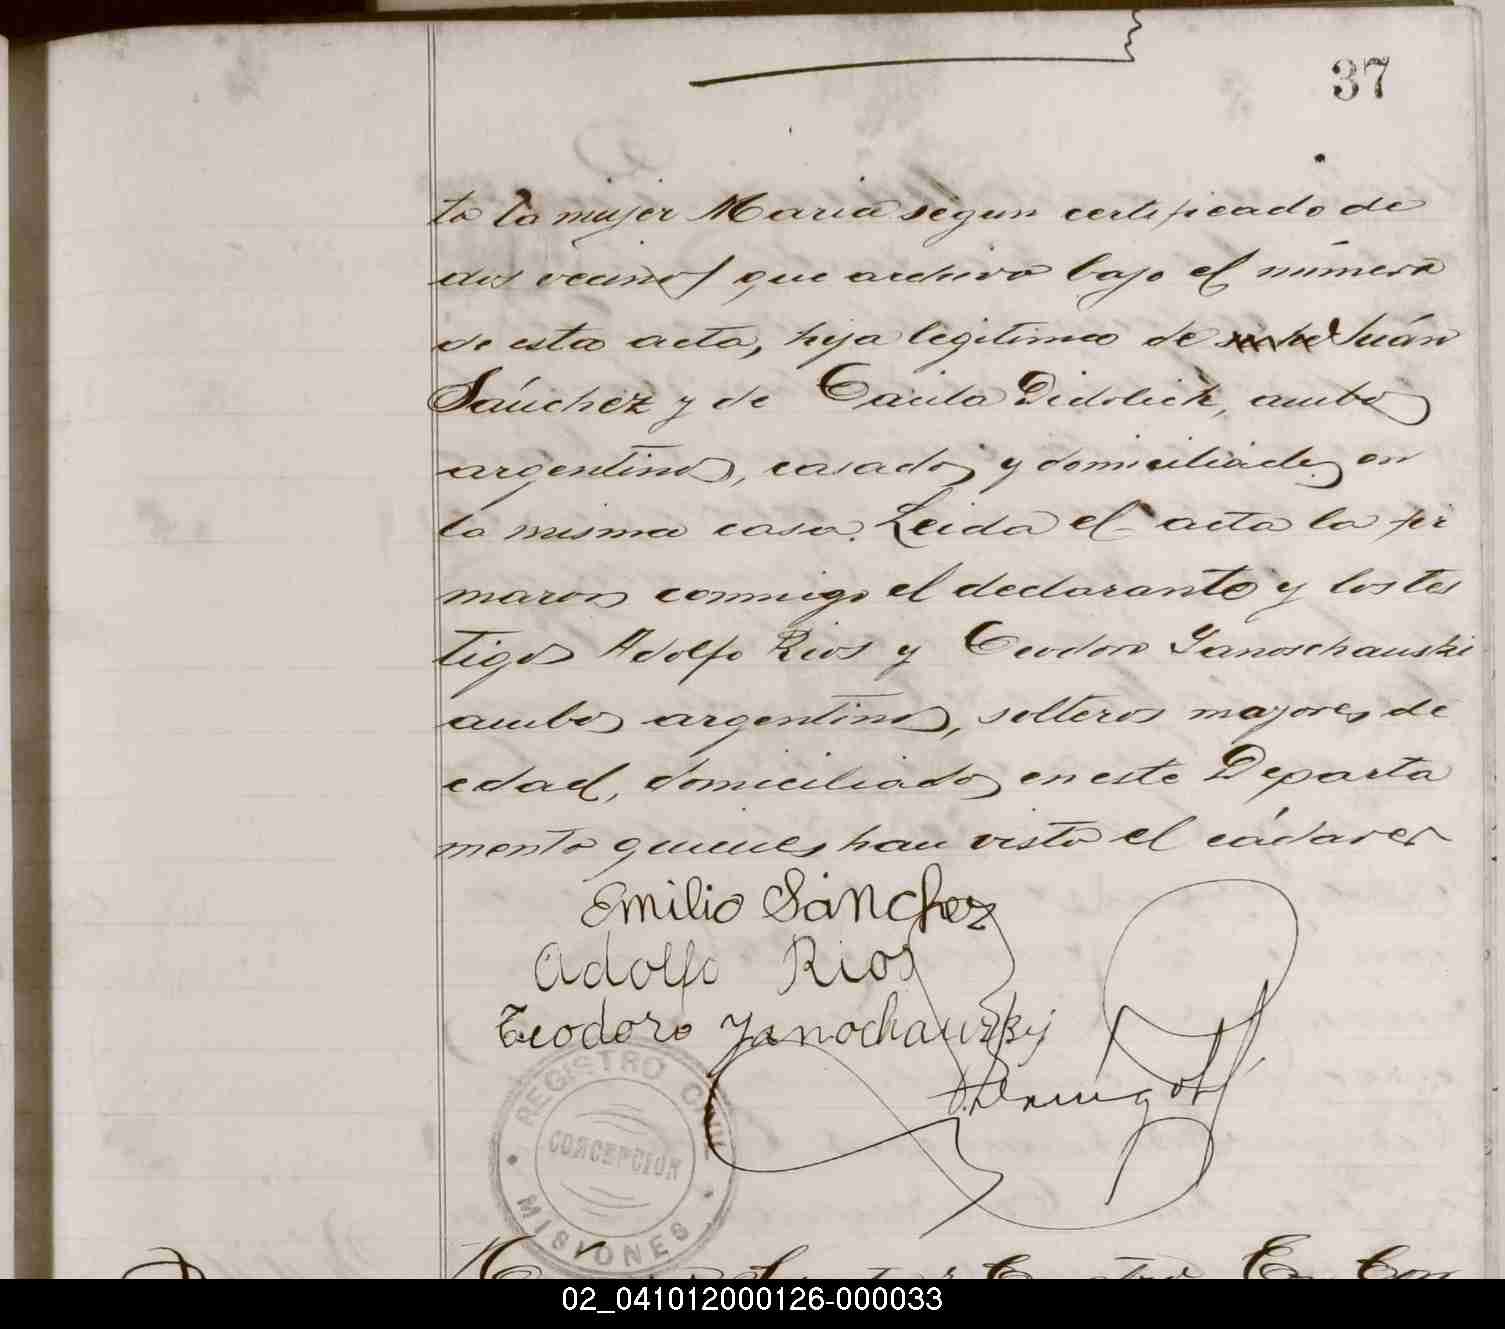 37
to la mujer Maria segun certificado de
dos vecinos que archivo bajo el número
de esta acta, hija legitima de Juán
Sánchez y de Paula Didolich, ambos
argentinos, casados y domiciliados en
la misma casa. Leida el acta la fir
maron conmigo el declarante y los tes
tigos Adolfo Rios y Teodoro Yanoschauski
ambos argentinos, solteros mayores de
edad, domiciliados en este Departa
mento quienes han visto el cádaver
Emilio Sánchez
Adolfo Rios
Teodoro Yanochauskij
REGISTRO CIVIL
CONCEPCION
MISIONES
02_041012000126-000033